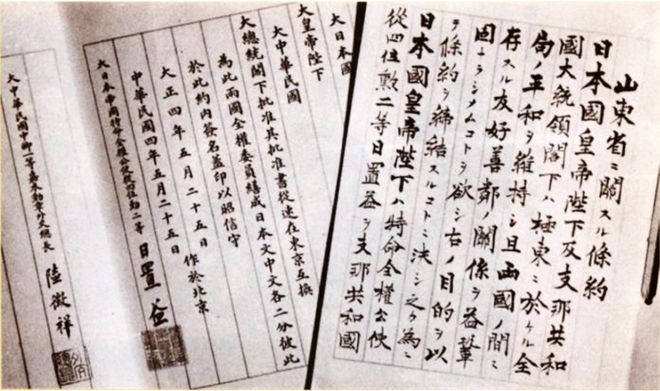 山東省ニ關スル條約
日本國皇帝陛下及支那共和
國大統領閣下ハ極東ニ於ケル全
局ノ平和ヲ維持シ且両國ノ間ニ
存スル友好善鄰ノ關係ヲ益鞏
固ナラシメムコトヲ欲シ右ノ目的ヲ以
テ條約ヲ締結スルコトニ決シ之カ為ニ
日本國皇帝陛下ハ特命全權公使
從四位勲二等日置益ヲ支那共和國
大日本國
大皇帝陛下
大中華民國
大總統閣下批准其批准書從速在東京互換
為此兩國全權委員繕成日本文中文各二分彼此
於此約內簽名蓋印以昭信守
大正四年五月二十五日 作於北京
中華民國四年五月二十五日
大日本帝國特命全權公使從四位勲二等 日置益
大中華民國中卿一等嘉禾勳章外交總長 陸徵祥